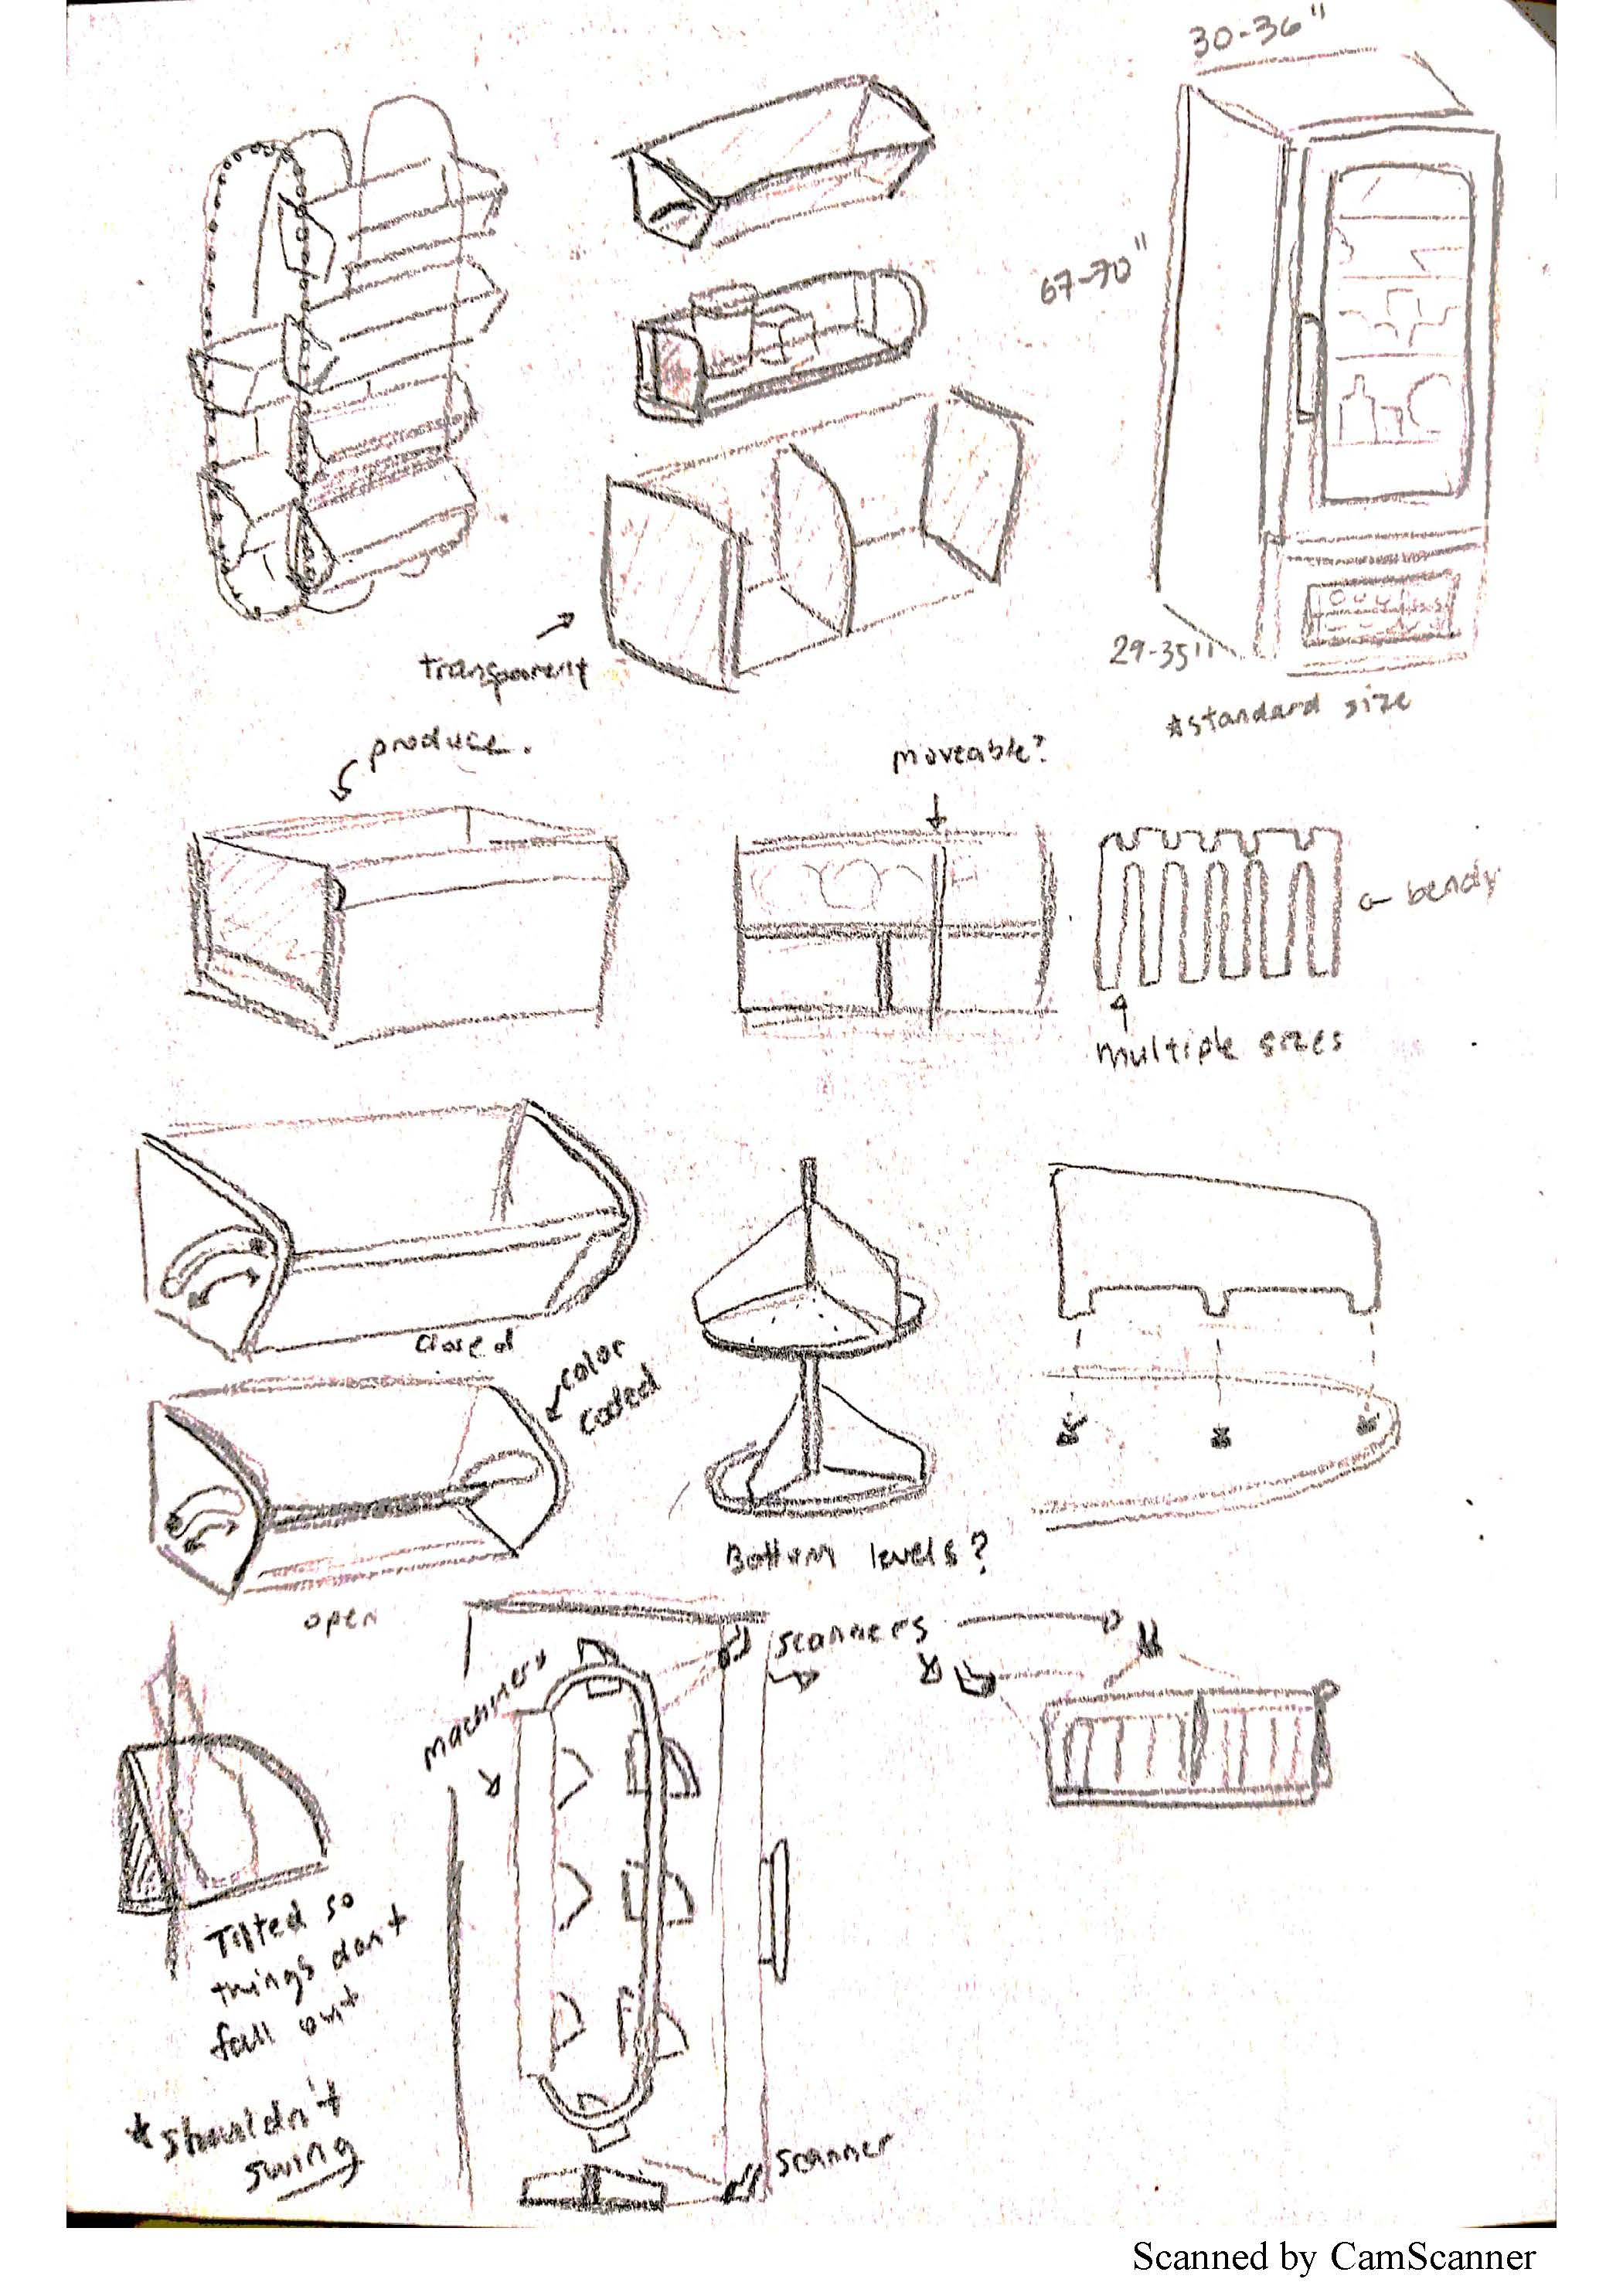 30-36"
67-70"
29-35"
*standard size
transparent
produce.
moveable?
bendy
multiple sizes
closed
color
coded
open
Bottom levels?
scanners
machinery
Tilted so
things don't
fall out
*shouldn't
swing
scanner
Scanned by CamScanner